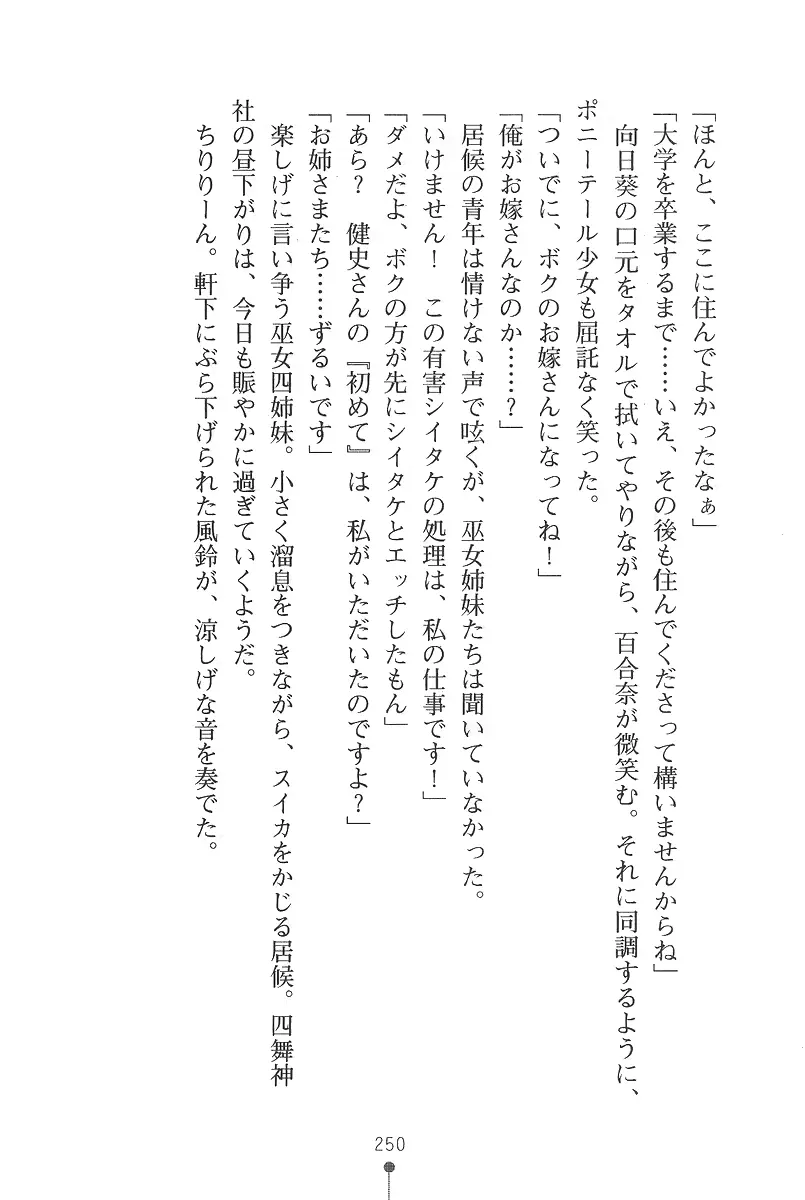 「ほんと、ここに住んでよかったなぁ」
「大学を卒業するまで……いえ、その後も住んでくださって構いませんからね」
　向日葵の口元をタオルで拭いてやりながら、百合奈が微笑む。それに同調するように、
ポニーテール少女も屈託なく笑った。
「ついでに、ボクのお嫁さんになってね！」
「俺がお嫁さんなのか……？」
　居候の青年は情けない声で呟くが、巫女姉妹たちは聞いていなかった。
「いけません！　この有害シイタケの処理は、私の仕事です！」
「ダメだよ、ボクの方が先にシイタケとエッチしたもん」
「あら？　健史さんの『初めて』は、私がいただいたのですよ？」
「お姉さまたち……ずるいです」
　楽しげに言い争う巫女四姉妹。小さく溜息をつきながら、スイカをかじる居候。四舞神
社の昼下がりは、今日も賑やかに過ぎていくようだ。
　ちりりーん。軒下にぶら下げられた風鈴が、涼しげな音を奏でた。
250